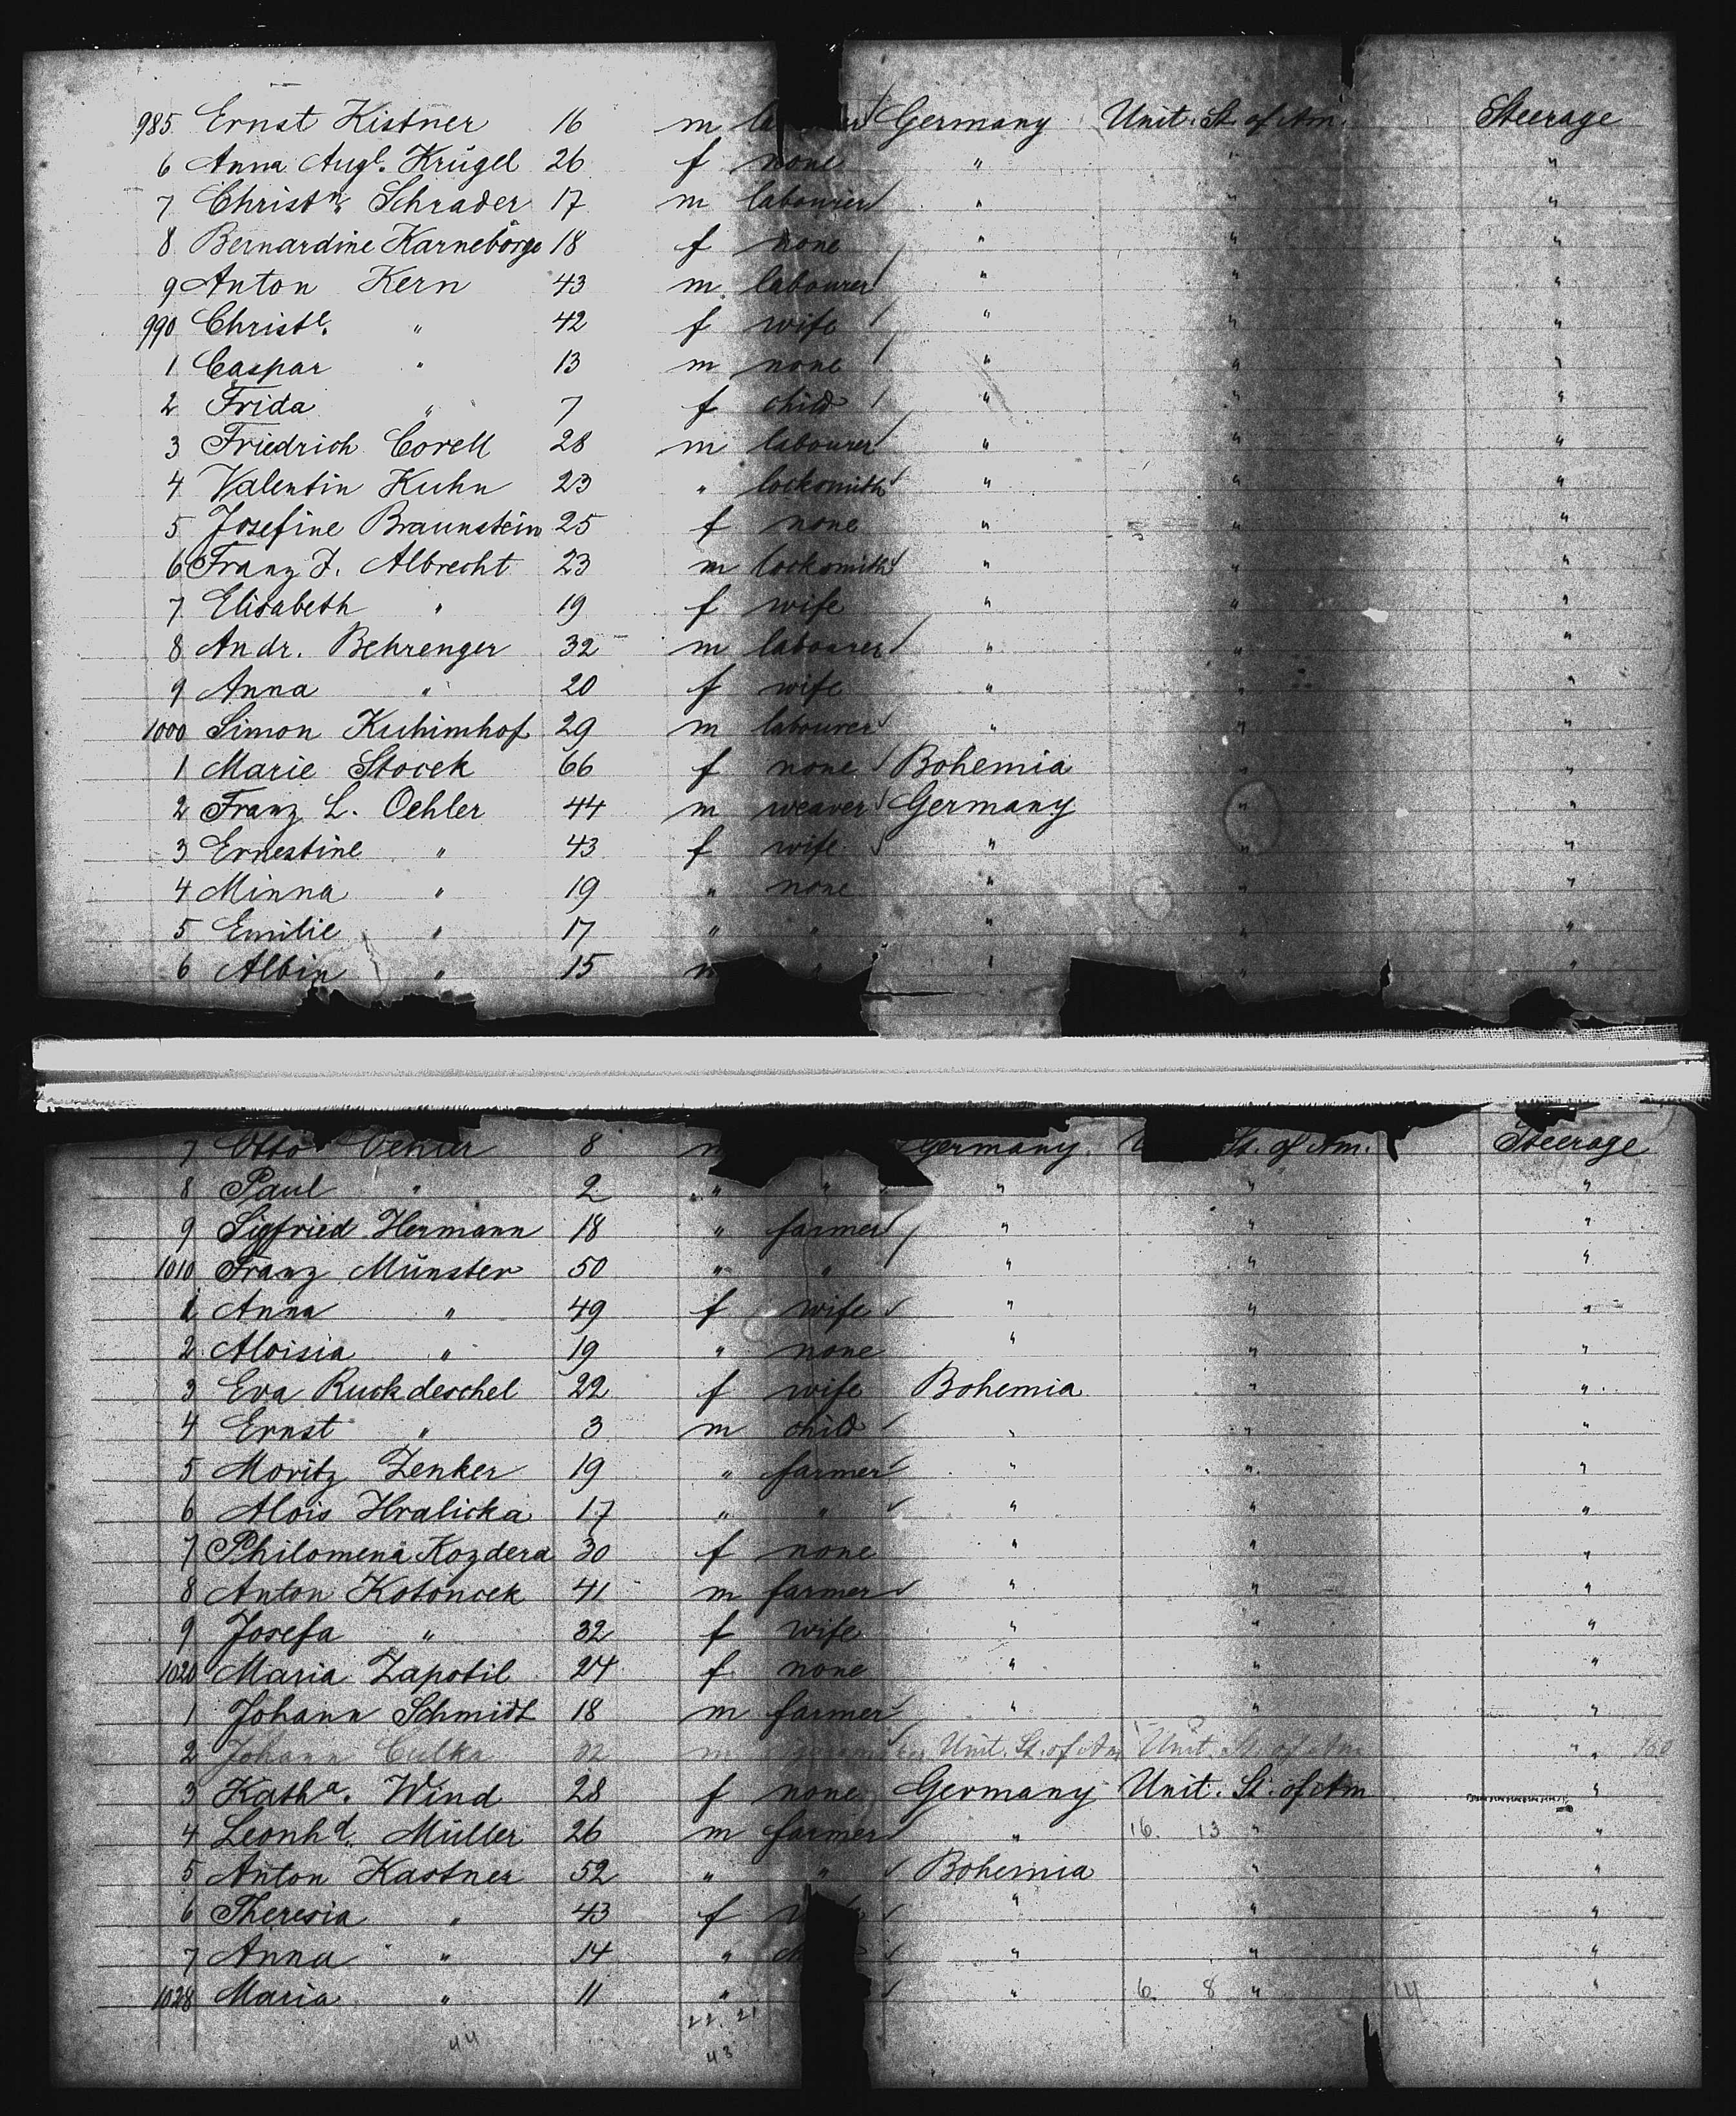 985 Ernst Kistner 16 m Germany Unit. St. of Am. Steerage
6 Anna Augte. Krügel 26 f none " " "
7 Christn. Schrader 17 m labourer " " "
8 Bernardine 18 f none " " "
9 Anton Kern 43 m labourer " " "
990 Christe. " 42 f wife " " "
1 Caspar " 13 m none " " "
2 Frida " 7 f child " " "
3 Friedrich Corell 28 m labourer " " "
4 Valentin Kuhn 23 " locksmith " " "
5 Josefine Braunstein 25 f none " " "
6 Franz J. Albrecht 23 m locksmith " " "
7 Elisabeth " 19 f wife " " "
8 Andr. Behrenger 32 m labourer " " "
9 Anna " 20 f wife " " "
1000 Simon Kuhimhof 29 m labourer " " "
1 Marie Stocek 66 f none Bohemia " "
2 Franz L. Oehler 44 m weaver Germany " "
3 Ernestine " 43 f wife " " "
4 Minna " 19 " none " " "
5 Emilie " 17 " " " " "
6 Albin " 15 m " " " "
7 Otto Oehler 8 m Germany St. of Am. Steerage
8 Paul " 2 " " " " "
9 Sigfried Hermann 18 " farmer " " "
1010 Franz Münster 50 " " " " "
1 Anna " 49 f wife " " "
2 Aloisia " 19 " none " " "
3 Eva Ruckdeschel 22 f wife Bohemia " "
4 Ernst " 3 m child " " "
5 Moritz Zenker 19 " farmer " " "
6 Alois Hralicka 17 " " " " "
7 Philomena Kozdera 30 f none " " "
8 Anton Kotoncek 41 m farmer " " "
9 Josefa " 32 f wife " " "
1020 Maria Zapotil 24 f none " " "
1 Johann Schmidt 18 m farmer " " "
2 Johann Culka 32 m Unit. St. of Am Unit. St. of Am "
3 Katha. Wind 28 f none Germany Unit. St. of Am "
4 Leonhd. Müller 26 m farmer " 16. 13 " "
5 Anton Kastner 52 " " Bohemia " "
6 Theresia " 43 f " " "
7 Anna " 14 " " " "
1028 Maria " 11 " " 6. 8 " 14 "
22. 21
44
43